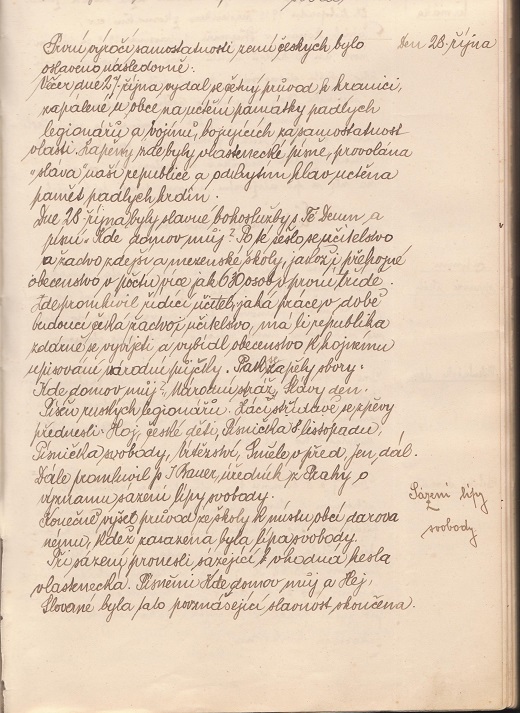 První výročí samostatnosti zemí českých bylo
oslaveno následovně.
Den 28. října
Večer dne 27. října vydal se četný průvod k hranici,
zapálené u obce na uctění památky padlých
legionářů a vojínů, bojujících za samostatnost
vlasti. Zapěny zde byly vlastenecké písně, provolána
"sláva" naší republice a odkrytím hlav uctěna
paměť padlých hrdin.
Dne 28. října byly slavné bohoslužby s Te Deum a
písní: Kde domov můj? Poté sešlo se učitelstvo
a žactvo zdejší a školy, jakož i
obecenstvo v počtu více jak 630 osob v první třídě.
Zde promluvil řídící učitel, jaká práce v době
budoucí čeká žactvo i učitelstvo, má-li republika
zdárně se vyvíjeti a vybídl obecenstvo k hojnému
upisování národní půjčky. Pak zapěly sbory:
Kde domov můj?, Národní stráž, Slávy den.
Píseň ruských legionářů. Žáci střídavě se zpěvy
přednesli: Hoj, české děti, Písnička listopadu,
Písnička svobody, Vítězství, Směle vpřed, jen dál.
Dále promluvil p. J. Bauer, úředník z Prahy o
významu sázení lípy svobody.
Sázení lípy
svobody
Konečně vyšel průvod ze školy k místu obcí darova
nému, kdež zasazena byla lípa svobody.
Při sázení pronesli sázející vhodná hesla
vlastenecká. Písněmi Kde domov můj a Hej,
Slované byla tato povznášející slavnost skončena.